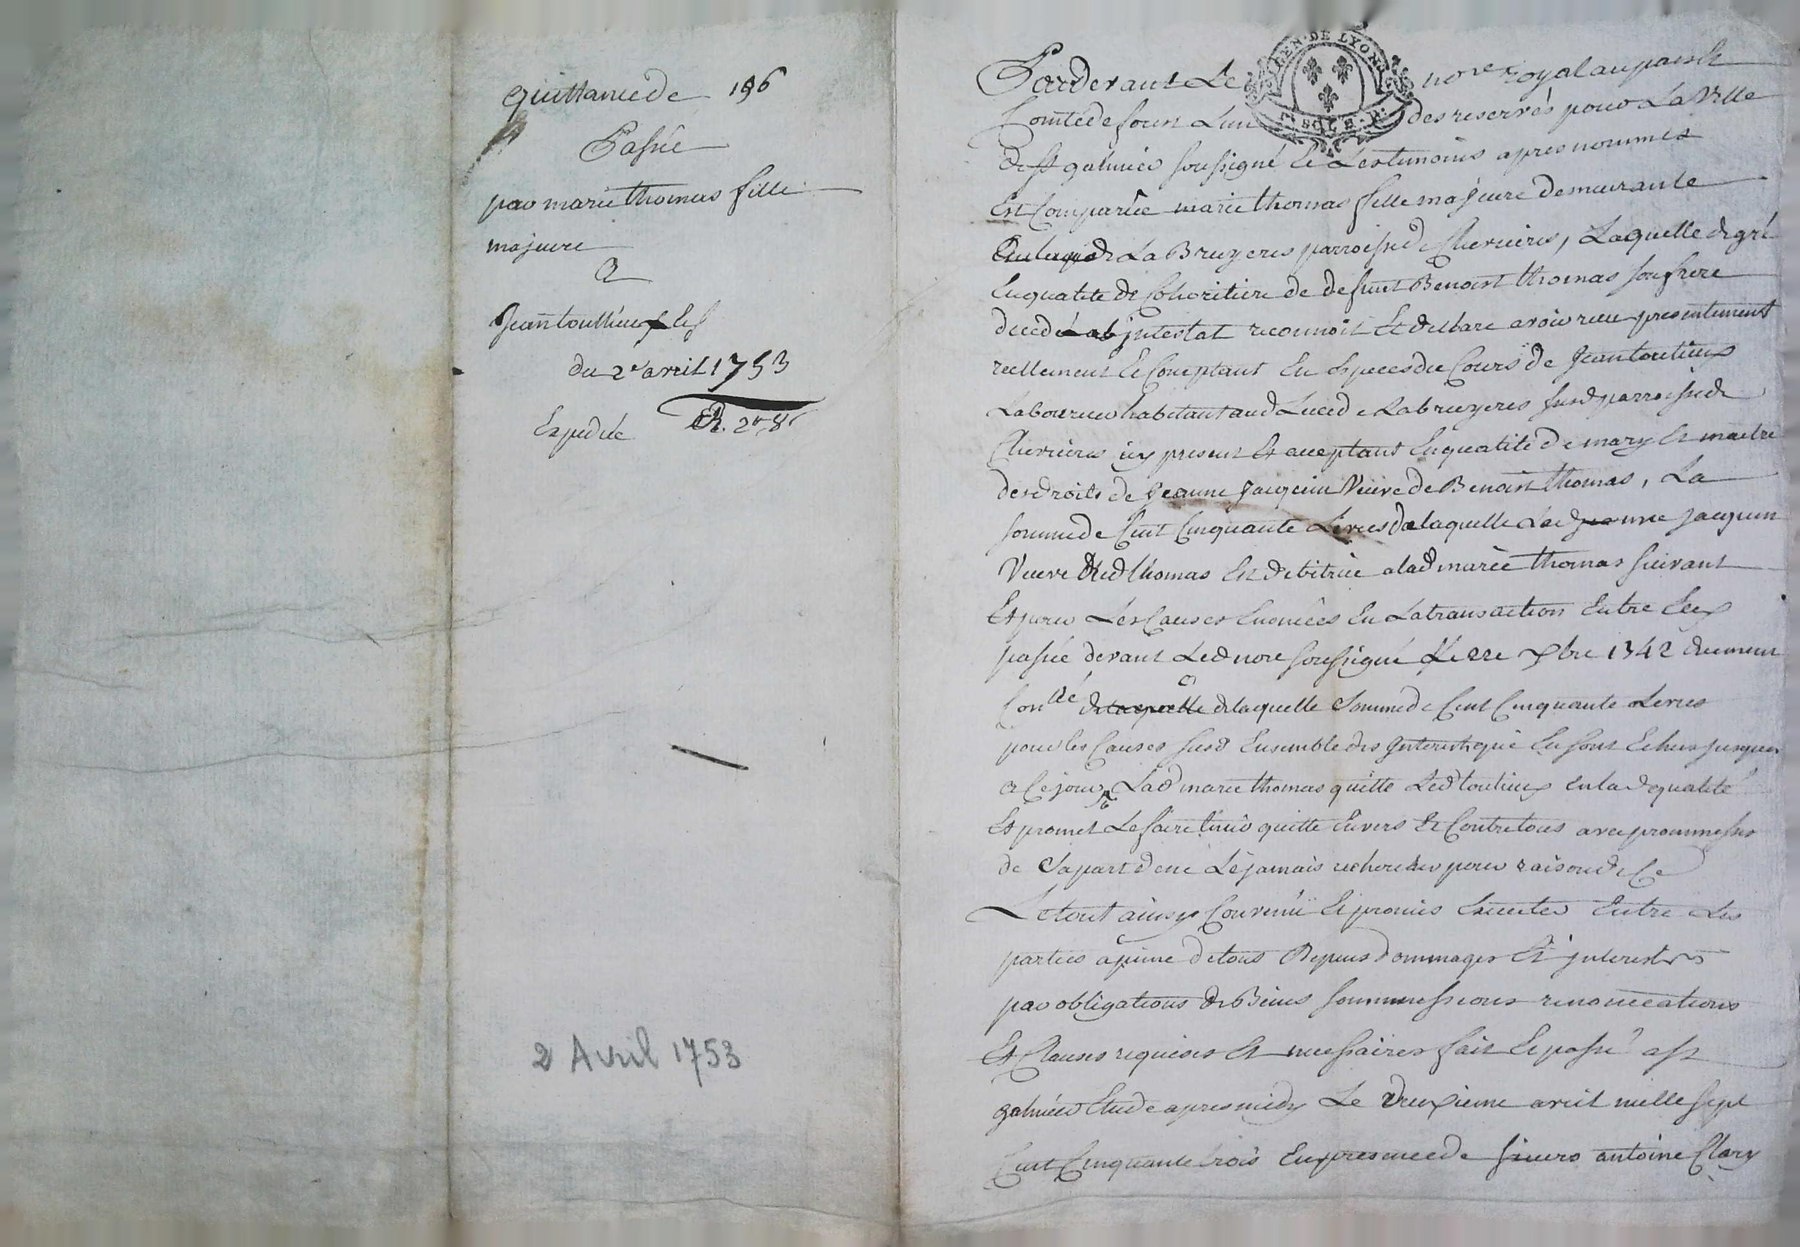 quittance de 196
Passée
par marie thomas fille
majeure
A
Jean toullieux
du 2e avril 1753
Expediée
2 Avril 1753
GEN. DE LYON
Pardevant Le no.re royal au païs &
Comté de forest L'un des reservés pour La Ville
de st galmier soussigné Et Les temoins apres nommés
Est Comparüe marie thomas fille majeure demeurante
La Bruyeres parroisse de Chevrieres, Laquelle de gré
En qualité de Coheritiere de deffunt Benoist thomas son frere
decedé ab jntestat reconnoit Et declare avoir reçu presentement
reellement Et Comptant En Especes du Cours de Jean toulieux
Laboureur habitant aud Lieu de Labruyeres susd parroisse de
Chevrieres icy present Et acceptant En qualité de mary Et maitre
des droits de Jeanne Jacquin Veuve de Benoist thomas, La
somme de Cent Cinquante Livres de laquelle Lad Jeanne Jacquin
Veuve dud thomas Est debitrice a lad marie thomas suivant
Et pour Les Causes Enoncées En La transaction Entre Eux
passée devant Led no.re soussigné Le 22e xbre 1742 duement
Con.llé de laquelle de laquelle Somme de Cent Cinquante Livres
pour les Causes susd Ensemble des jnterests qui En sont Echus jusques
a Ce jour, Lad marie thomas quitte Led toulieux En lad qualité
Et promet Le faire tenir quitte Envers Et Contre tous avec promesses
de Sa part de ne Le jamais rechercher pour raison de Ce
Le tout ainsy Convenü Et promis Executer Entre Les
parties a peine de tous Depens dommages Et jnterests
par obligations de Biens soummissions renonciations
Et Clauses requises Et necessaires fait Et passé a st
galmier Etude apres midy Le deuxieme avril mille sept
Cent Cinquante trois En presence de sieurs antoine Clary